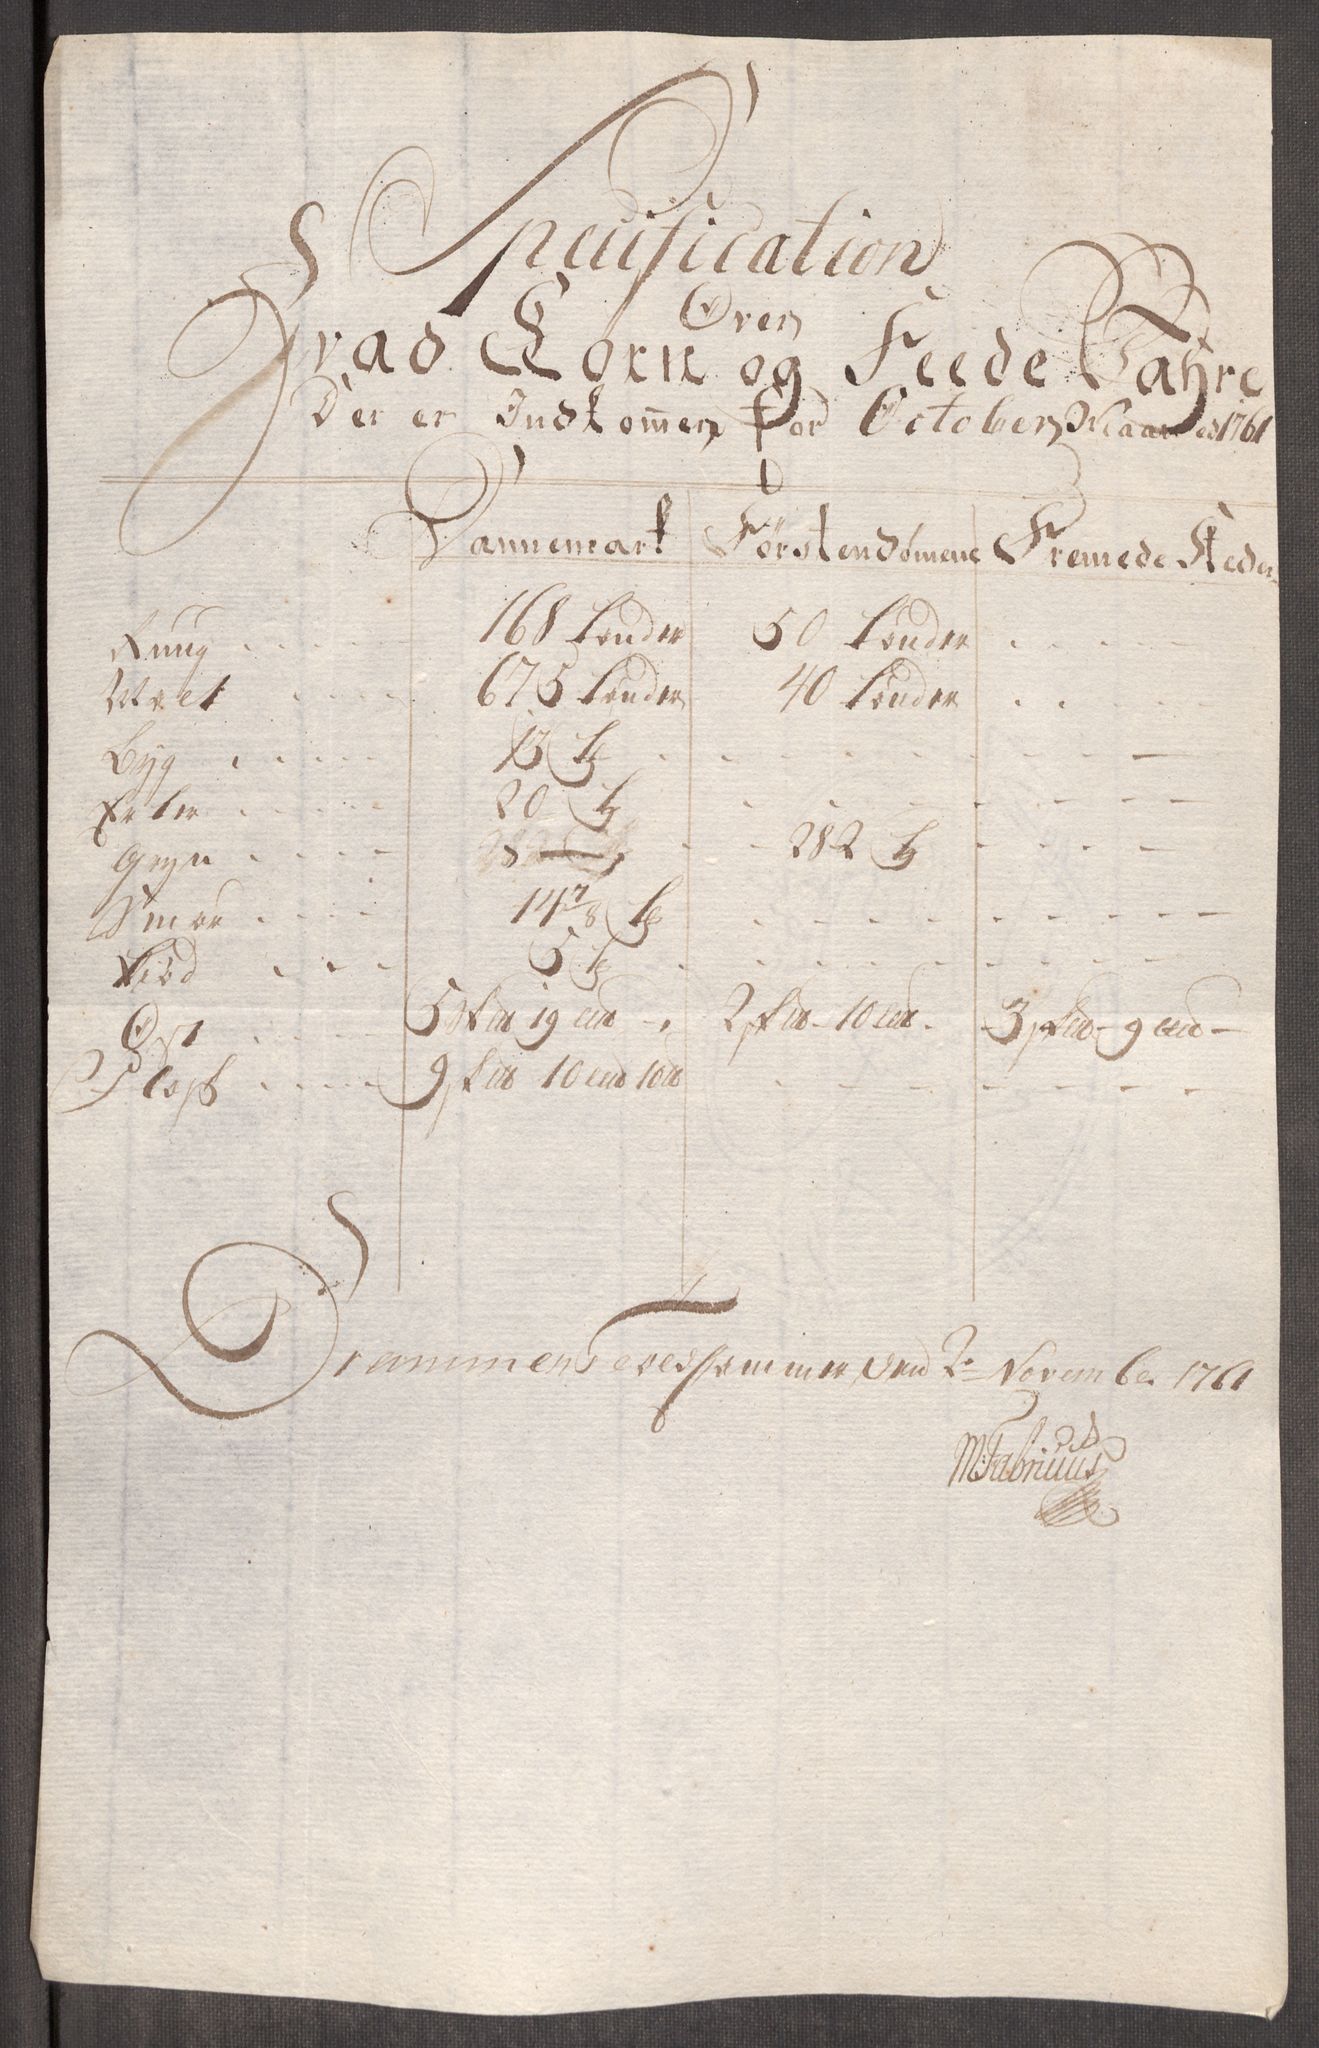 Specification
Over
Hvad Korn og Feede Vahre
Der er Indkommen for October Maaned 1761
Dannemark Førstendømene Fremede Steder
Ruug 168 tønder 50 tønder
Malt 675 tønder 40 tønder
Byg 13 tr
Erter 20 tr
Gryn 282 tr
Smør 14 7/8 tr
Kiød 5 tr
Ost 5 sk℔ 19 l℔ 2 sk℔ 10 l℔ 3 sk℔ 9 l℔
Flesk 9 sk℔ 10 l℔ 10 ℔
Drammens den 2. November 1761
MFabritius